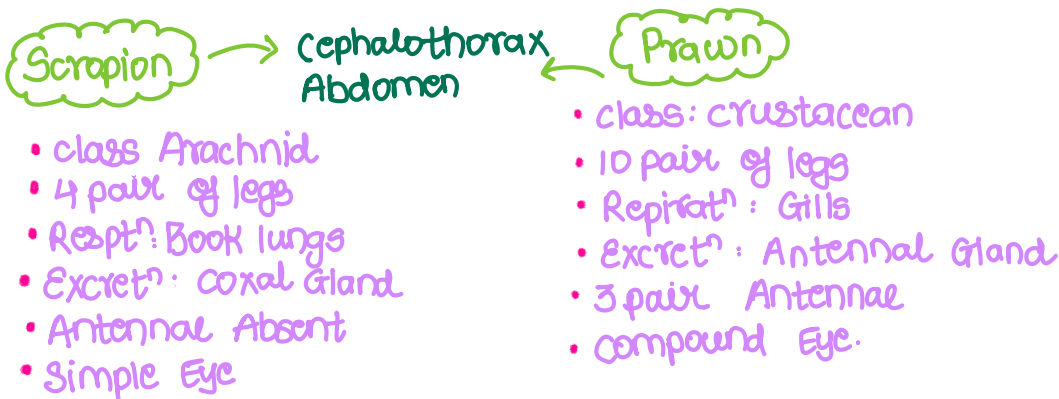 Scropion
Cephalothorax
Abdomen
Prawn
• class Arachnid
• 4 pair of legs
• Resptⁿ: Book lungs
• Excretⁿ: Coxal Gland
• Antennae Absent
• Simple Eye
• class: crustacean
• 10 pair of legs
• Repiratⁿ: Gills
• Excretⁿ: Antennal Gland
• 3 pair Antennae
• Compound Eye.